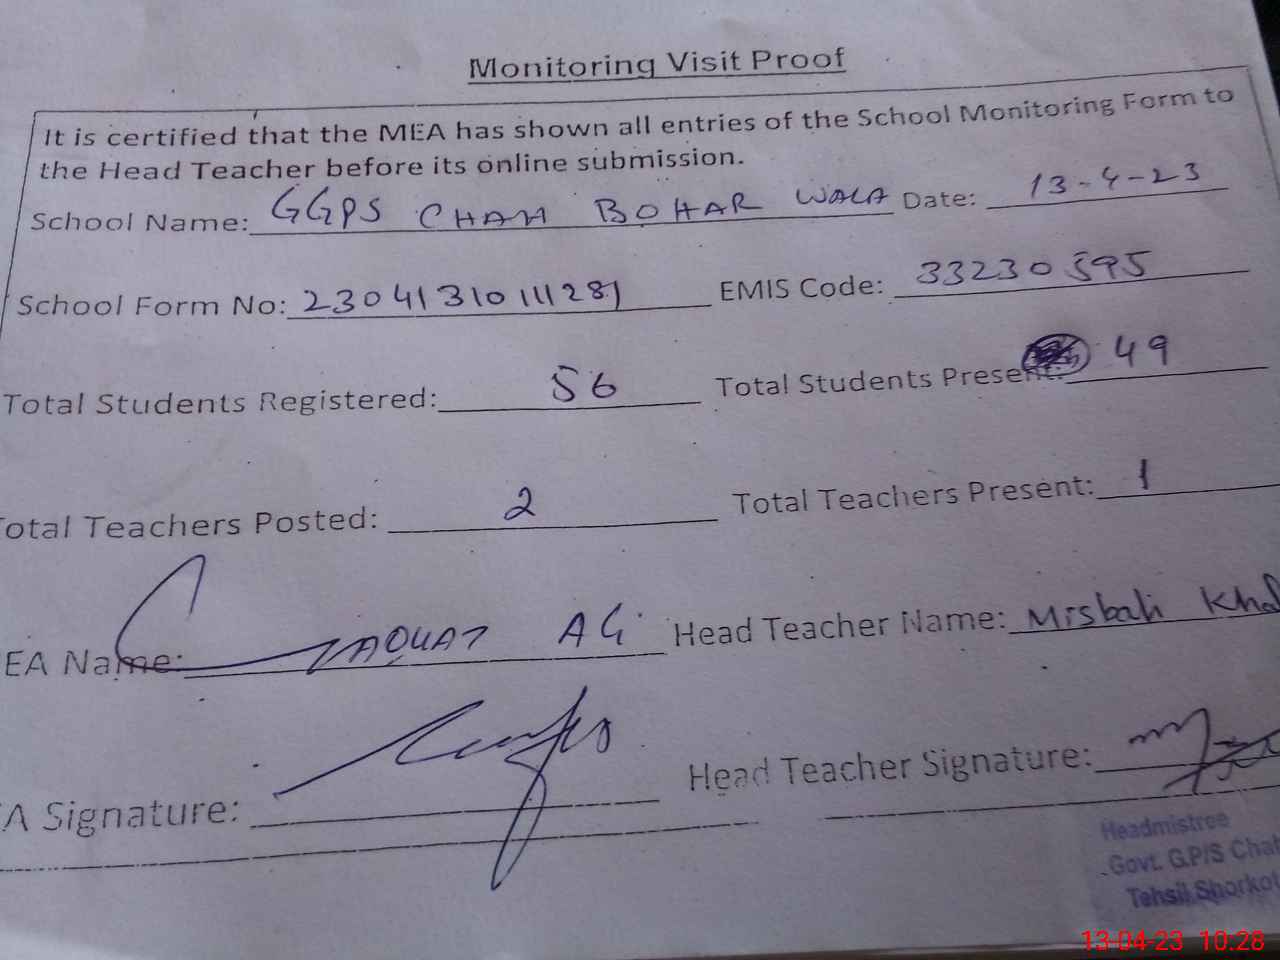 Monitoring Visit Proof
It is certified that the MEA has shown all entries of the School Monitoring Form to
the Head Teacher before its online submission.
School Name: GGPS CHAH BOHAR WALA Date: 13-4-23
School Form No: 2304131011281 EMIS Code: 33230595
Total Students Registered: 56 Total Students Present: 49
otal Teachers Posted: 2 Total Teachers Present: 1
EA Name: LIAQUAT ALI Head Teacher Name: Misbah Kha
A Signature: Head Teacher Signature:
Headmistree
Govt. G.P/S Chah
Tehsil Shorkot
13-04-23 10:28